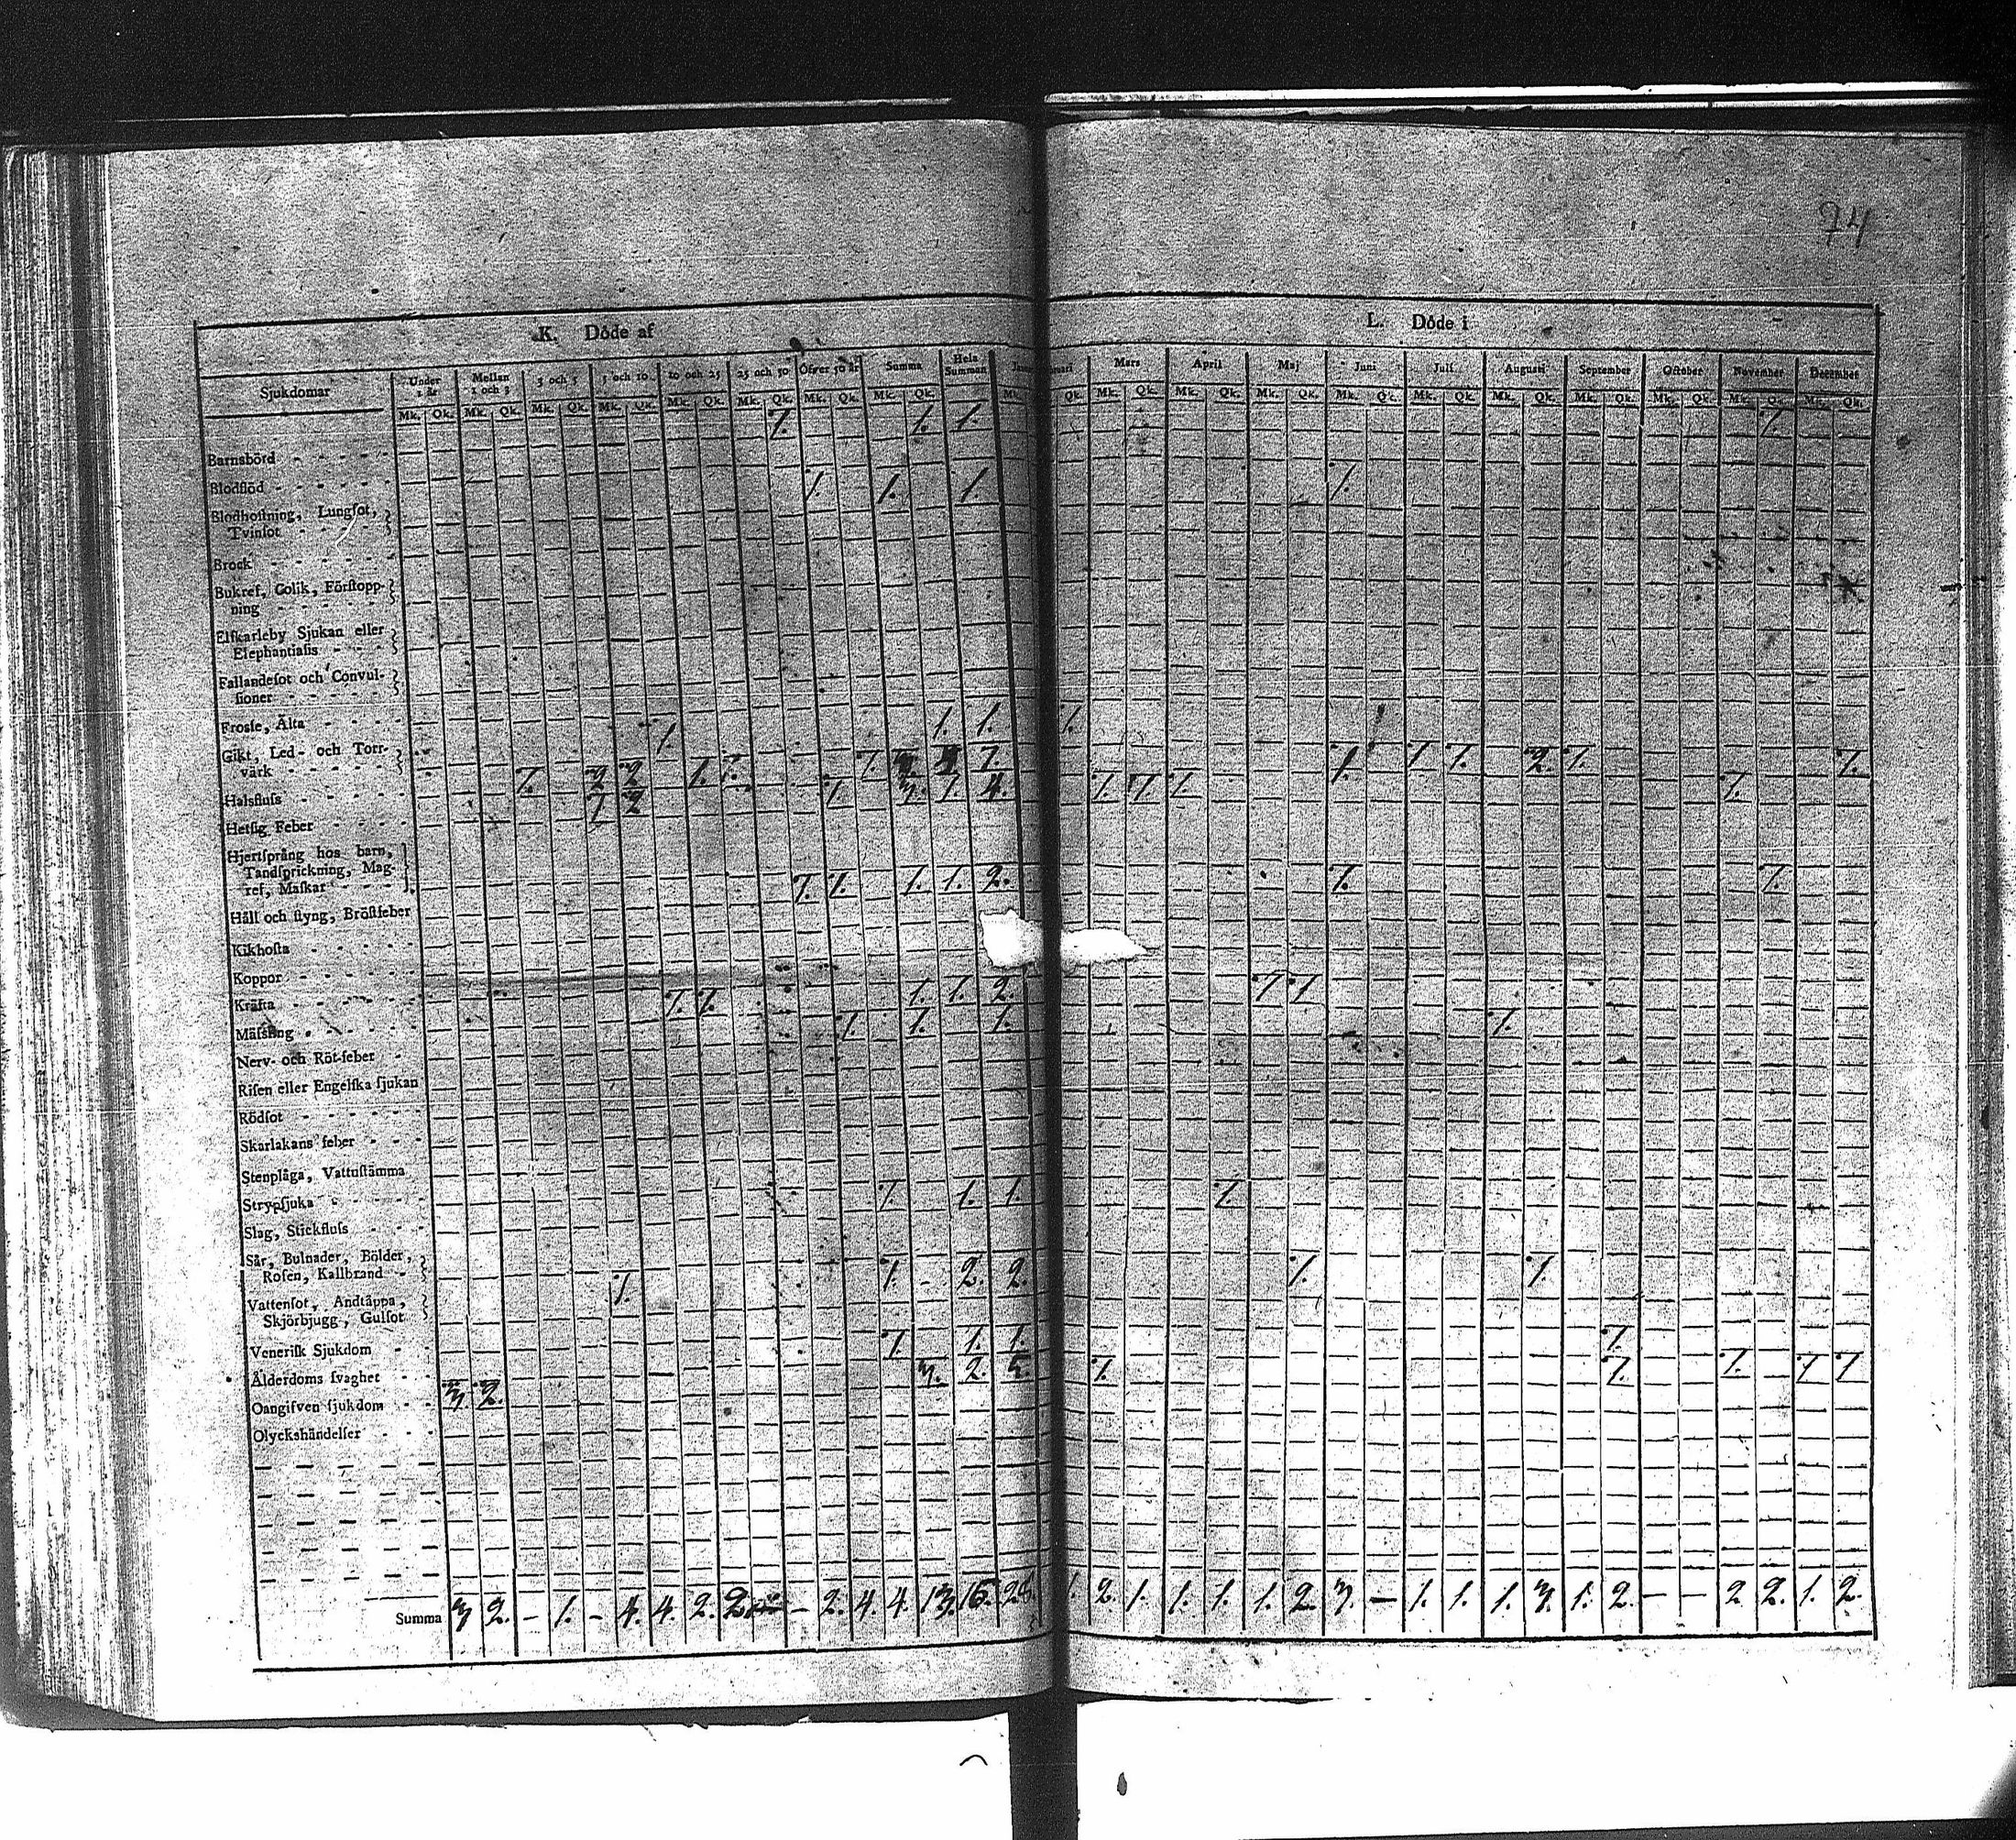 74
K. Döde af
L. Döde i
Sjukdomar
Under 1 år
Mellan 1 och 3
3 och 5
5 och 10
10 och 25
25 och 50
Öfver 50 år
Summa
Hela Summan
Mars
April
Maj
Juni
Juli
Augusti
September
Oktober
November
December
Mk. Qk. Mk. Qk. Mk. Qk. Mk. Qk. Mk. Qk. Mk. Qk. Mk. Qk. Mk. Qk.
Qk. Mk. Qk. Mk. Qk. Mk. Qk. Mk. Qk. Mk. Qk. Mk. Qk. Mk. Qk. Mk. Qk. Mk. Qk. Mk. Qk.
1. 1. 1. 1.
Barnsbörd
Blodflöd 1. 1. 1. 1.
Blodhoſtning, Lungſot,
Tvinſot
Brock
Bukref, Colik, Förſtopp-
ning
Elfkarleby Sjukan eller
Elephantiaſis
Fallandeſot och Convul-
ſioner
Froſſe, Älta 1. 1. 1. 1.
Gikt, Led- och Torr-
värk
Halsfluſs
Hetſig Feber
Hjertſprång hos barn,
Tandſprickning, Mag-
ref, Maſkar 1. 1. 1. 1. 2. 1. 1.
Håll och ſtyng, Bröſtfeber
Kikhoſta
Koppor
Kräfta 1. 1. 1. 1. 2. 1. 1.
Mäſsling 1. 1. 1. 1.
Nerv- och Röt-feber
Riſen eller Engelſka ſjukan
Rödſot
Skarlakans feber
Stenplåga, Vattuſtämma
Strypſjuka 1. 1. 1. 1.
Slag, Stickfluſs
Sår, Bulnader, Bölder,
Roſen, Kallbrand 1. 1. - 2. 2. 1. 1.
Vattenſot, Andtäppa,
Skjörbjugg, Gulſot
Veneriſk Sjukdom 1. 1. 1. 1.
Ålderdoms ſvaghet 3. 2. 5. 1. 1. 1. 1. 1.
Oangifven ſjukdom 3. 2.
Olyckshändelſer
Summa 3 2. - 1. - 4. 4. 2. 2. - 2. 4. 4. 13. 15. 28. 1. 2. 1. 1. 1. 1. 2. 3. - 1. 1. 1. 3. 1. 2. - - 2 2. 1. 2.